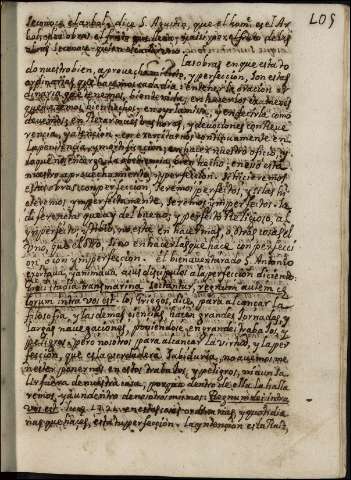 LOS
se conoce el arbol, dice S. Agustin, que el hom. es el Ar
bol, y las obras el fruto que lleva, y assi por el fruto de las
obras se conoce quien es cada uno.
las obras en que esta to
do nuestro bien, aprovechamiento, y perfeccion, son estas
ordinarias que hacemos cada dia: en tener la oracion or
dinaria que tenemos, bien tenida, en hacer los examenes
que hacemos bien hechos, en oyr la missa, y en decirla como
devemos, en rezar nras horas, y devociones con Reve
rencia, y attencion, en exercitarnos continuamente en
la penitencia, y mortificacion, en hacer nuestro officio, y
lo que nos encarga la obediencia bien hecho, en esto esta
nuestro aprovechamiento, y perfeccion. si hicieremos
estas obras con perfeccion, seremos perfectos, y si las hi
cieremos imperfectamente, seremos imperfectos. la
differencia que ay del bueno, y perfecto Religioso, al
imperfecto, y tibio, no esta en hacer mas, o otras cosas el
uno que el otro, sino en hacer las que hace con perfecci
on, o con imperfeccion. el bienaventurado S. Antonio
exortava, y animava a sus discipulos a la perfeccion diciendo:
Graeci studia transmarina sectantur, regnum autem coe
lorum intra vos est. los Griegos, dice, para alcanzar la
filosofia, y las demas sciencias hacen grandes Jornadas, y
largas navegaciones, poniendose en grandes trabajos, y
peligros; pero nosotros para alcanzar la virtud, y la per
feccion, que es la verdadera Sabiduria, no avemos me
nester ponernos en estos trabajos, y peligros, ni aun sa
lir fuera de nuestra casa, porque dentro de ella la halla
remos, y aun dentro de nosotros mismos: Regnum dei intra
vos est. luc. 17. 21. en estas cosas ordinarias, y quotidia
nas que haces, esta tu perfeccion.